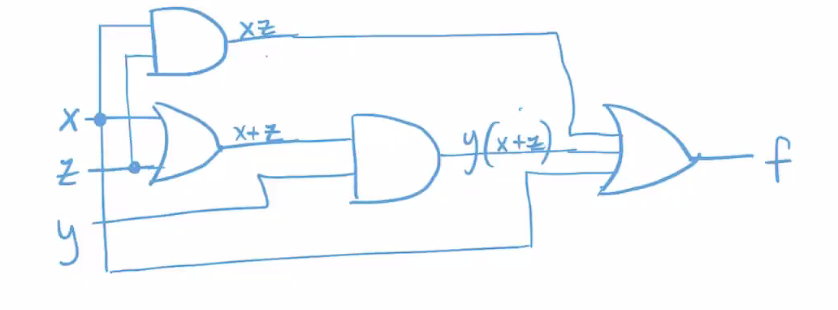 xz
x
x+z
y(x+z)
f
z
y